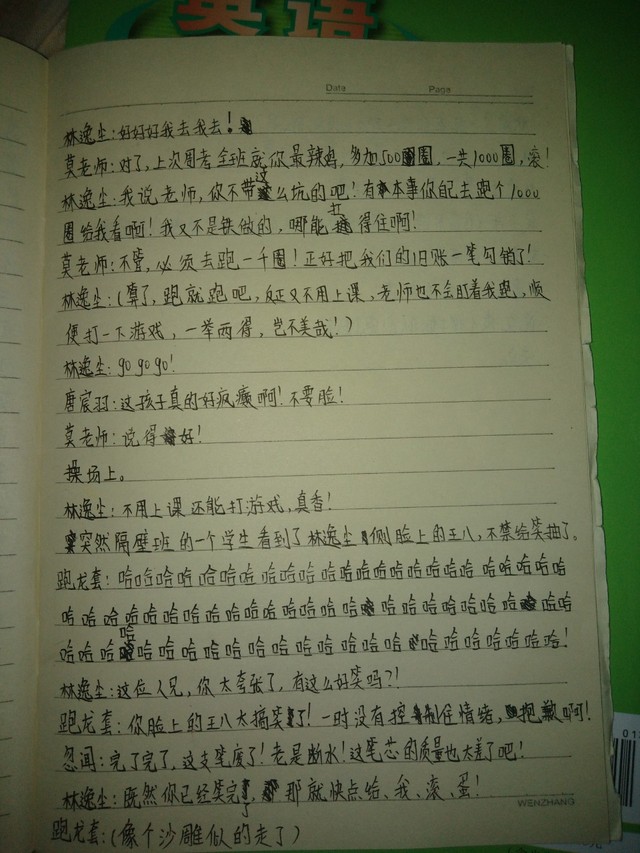 英语
Date
Page
林逸尘:好好好我去我去!
莫老师:对了,上次周考全班就你最辣鸡,多加500圈,一共1000圈,滚!
林逸尘:我说老师,你不带这么坑的吧!有本事你自己去跑个1000
圈给我看啊!我又不是铁做的,哪能打得住啊!
莫老师:不管,必须去跑一千圈!正好把我们的旧账一笔勾销了!
林逸尘:(算了,跑就跑吧,反正又不用上课,老师也不会盯着我跑,顺
便打一下游戏,一举两得,岂不美哉!)
林逸尘:go go go!
唐宸羽:这孩子真的好疯癫啊!不要脸!
莫老师:说得好!
操场上。
林逸尘:不用上课还能打游戏,真香!
突然隔壁班的一个学生看到了林逸尘侧脸上的王八,不禁给笑抽了。
跑龙套:哈哈哈哈哈哈哈哈哈哈哈哈哈哈哈哈哈哈哈哈哈
哈哈哈哈哈哈哈哈哈哈哈哈哈哈哈哈哈哈哈哈哈哈哈
哈哈哈哈哈哈哈哈哈哈哈哈哈哈哈哈哈哈哈哈哈哈哈!
林逸尘:这位人兄,你太夸张了,有这么好笑吗?!
跑龙套:你脸上的王八太搞笑了!一时没有控制住情绪,抱歉啊!
忽闻:完了完了,这支笔废了!老是断水!这笔芯的质量也太差了吧!
林逸尘:既然你已经笑完了,那就快点给、我、滚、蛋!
WENZHANG
跑龙套:(像个沙雕似的走了)